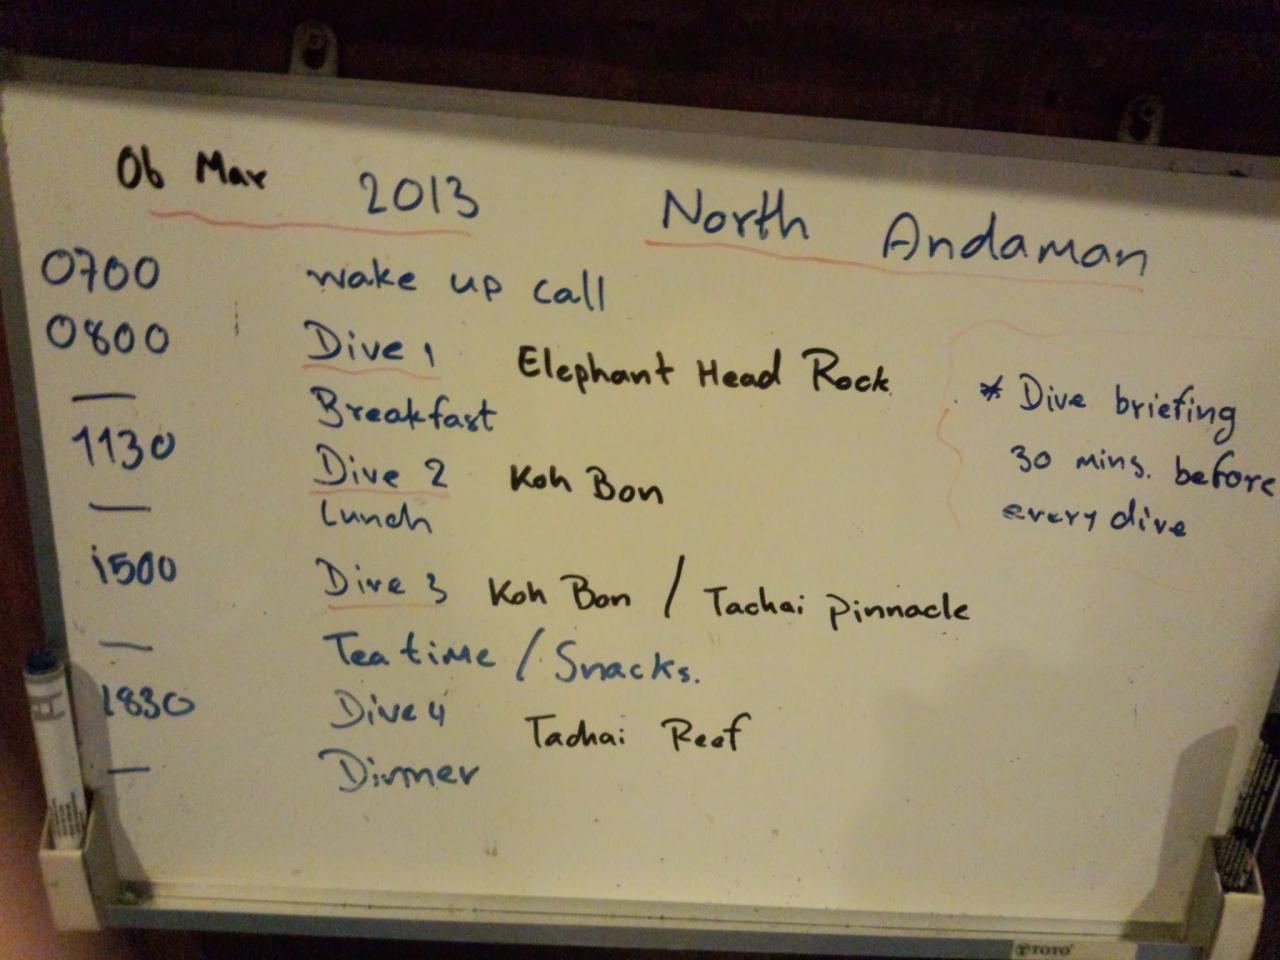 06 Mar 2013 North Andaman
0700 wake up call
0800 Dive 1 Elephant Head Rock
— Breakfast
1130 Dive 2 Koh Bon
— Lunch
1500 Dive 3 Koh Bon / Tachai pinnacle
— Tea time / Snacks.
1830 Dive 4 Tachai Reef
— Dinner
* Dive briefing
30 mins. before
every dive
TOTO